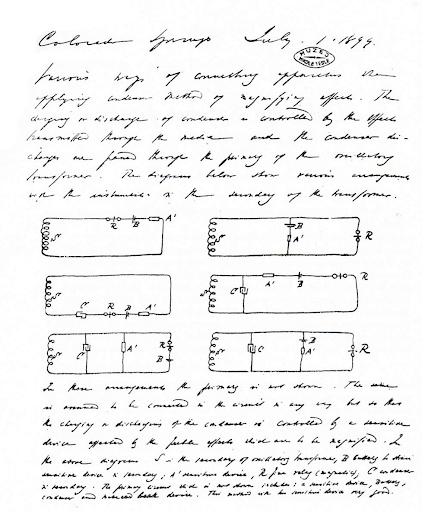 Colorado Springs July. 1. 1899.
MUZEJ
NIKOLE TESLE
Various ways of connecting apparatus when
applying condenser method of magnifying effects. The
charging or discharge of condenser is controlled by the effects
transmitted through the media and the condenser dis-
charges are passed through the primary of the oscillatory
transformer. The diagrams below show various arrangements
with the instruments in the secondary of the transformer.
S R B A'
S B A' R
S C R B A'
S C A' B R
S C A' R B
S C B A' R
In these arrangements the primary is not shown. The same
is assumed to be connected in the circuit in any way but so that
the charging or discharging of the condenser is controlled by a sensitive
device affected by the feeble effects which are to be magnified. In
the above diagrams S is the secondary of oscillatory transformer, B battery to strain
sensitive device in secondary, A' sensitive device, R relay (magnetic), C condenser
in secondary. The primary circuit which is not shown includes: a sensitive device, battery,
condenser and make and break device. This method with two sensitive devices very good.